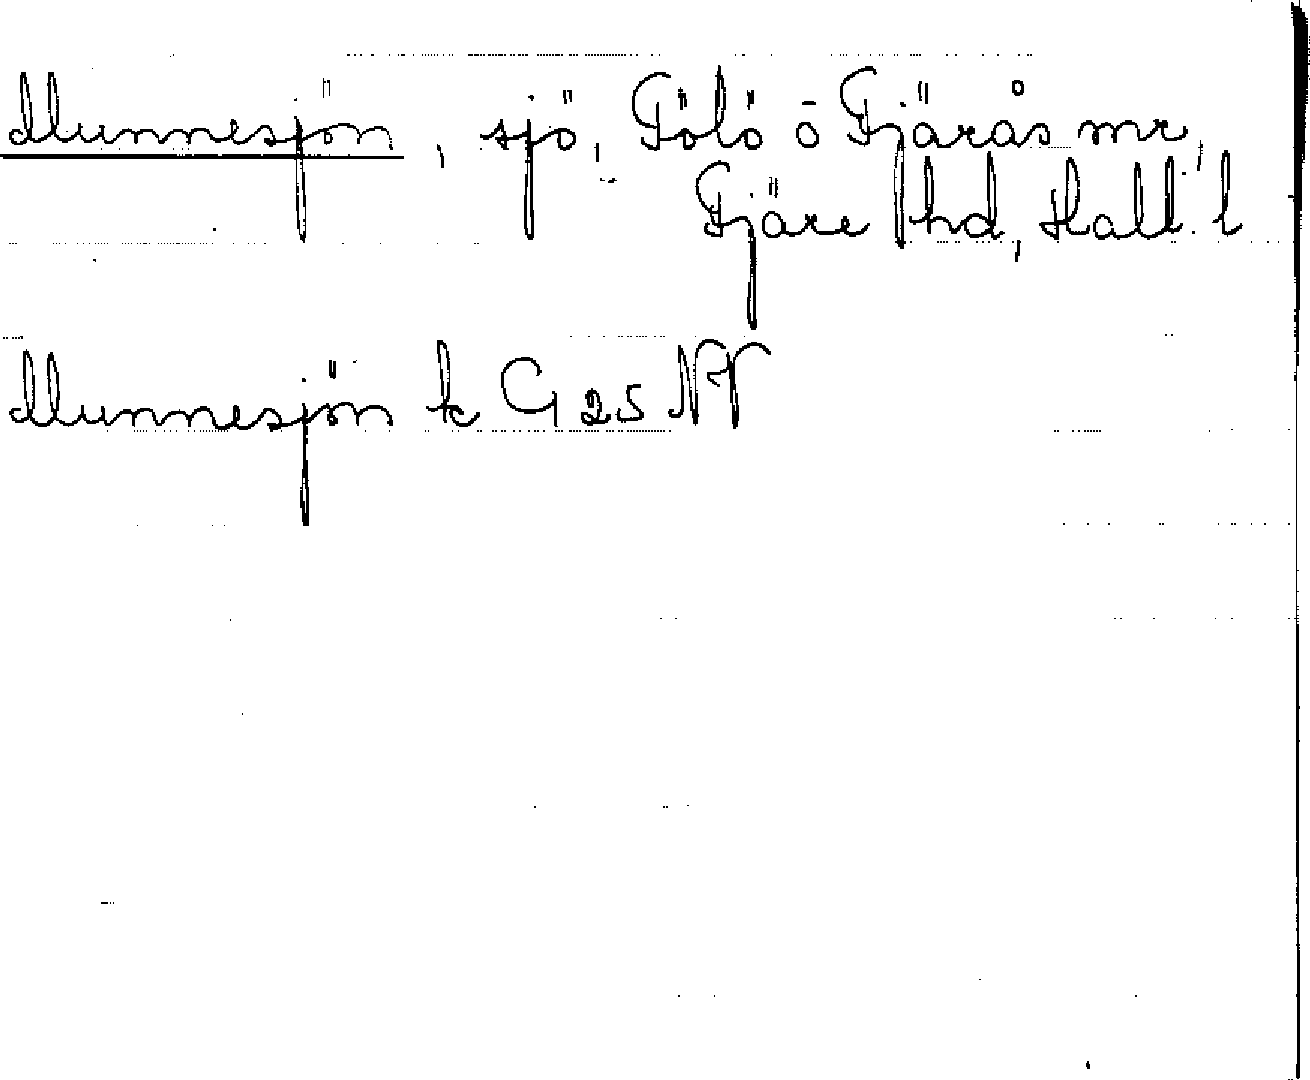 Munnesjön, sjö, Fölö o Fjärås snr,
Fjäre hd, Hall. l
Munnesjön k G 25 NV